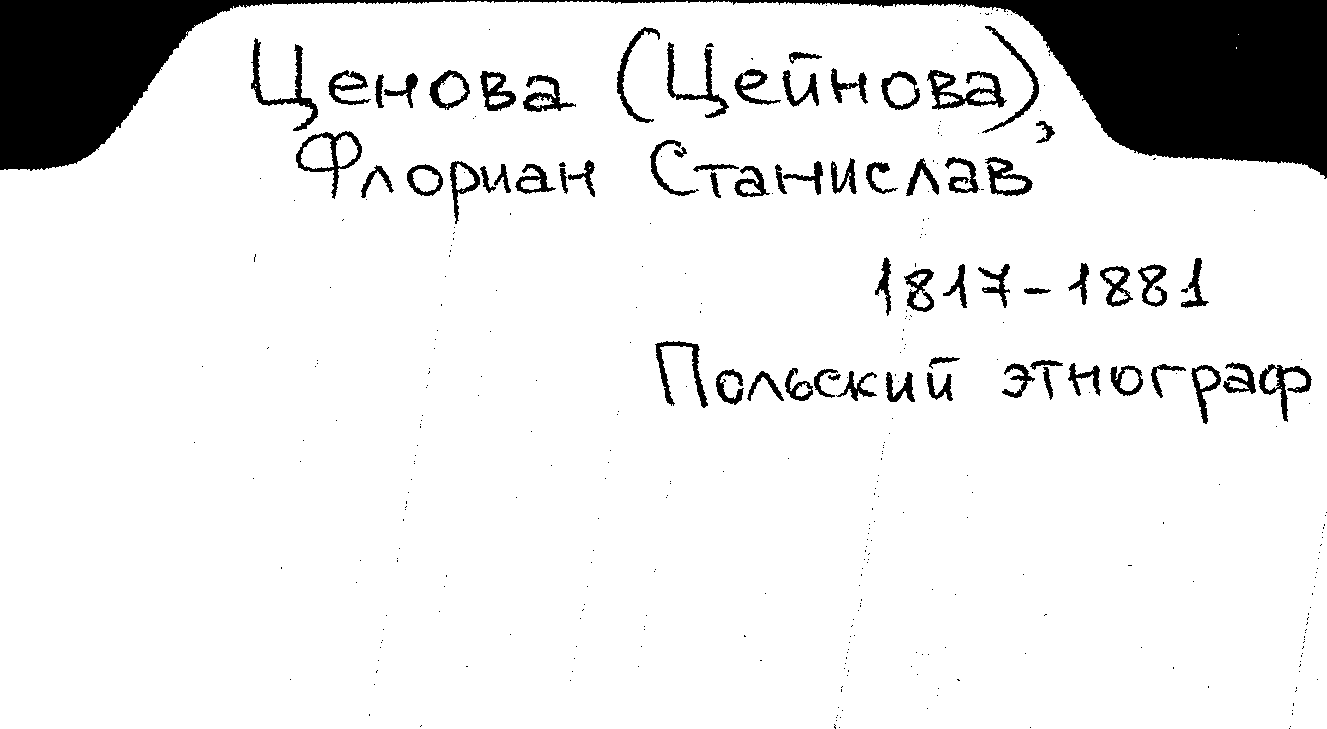 Ценова (Цейнова),
Флориан Станислав
1817-1881
Польский этнограф